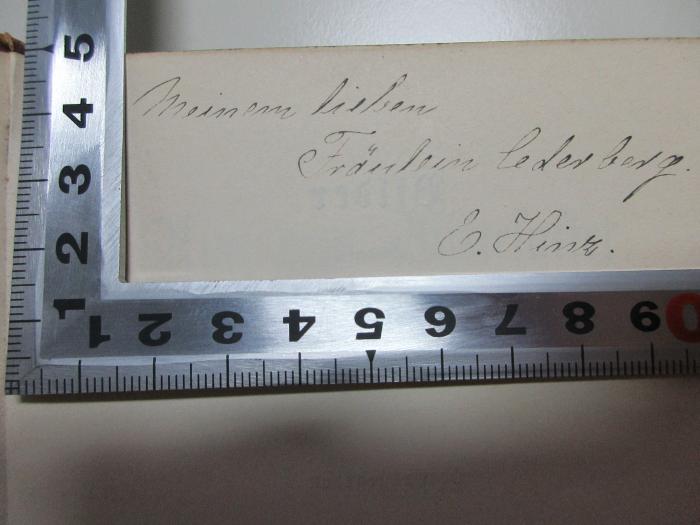 Meinem lieben
Fräulein Lederberg.
E. Hinz.
5
4
3
2
1
1 2 3 4 5 6 7 8 9 0